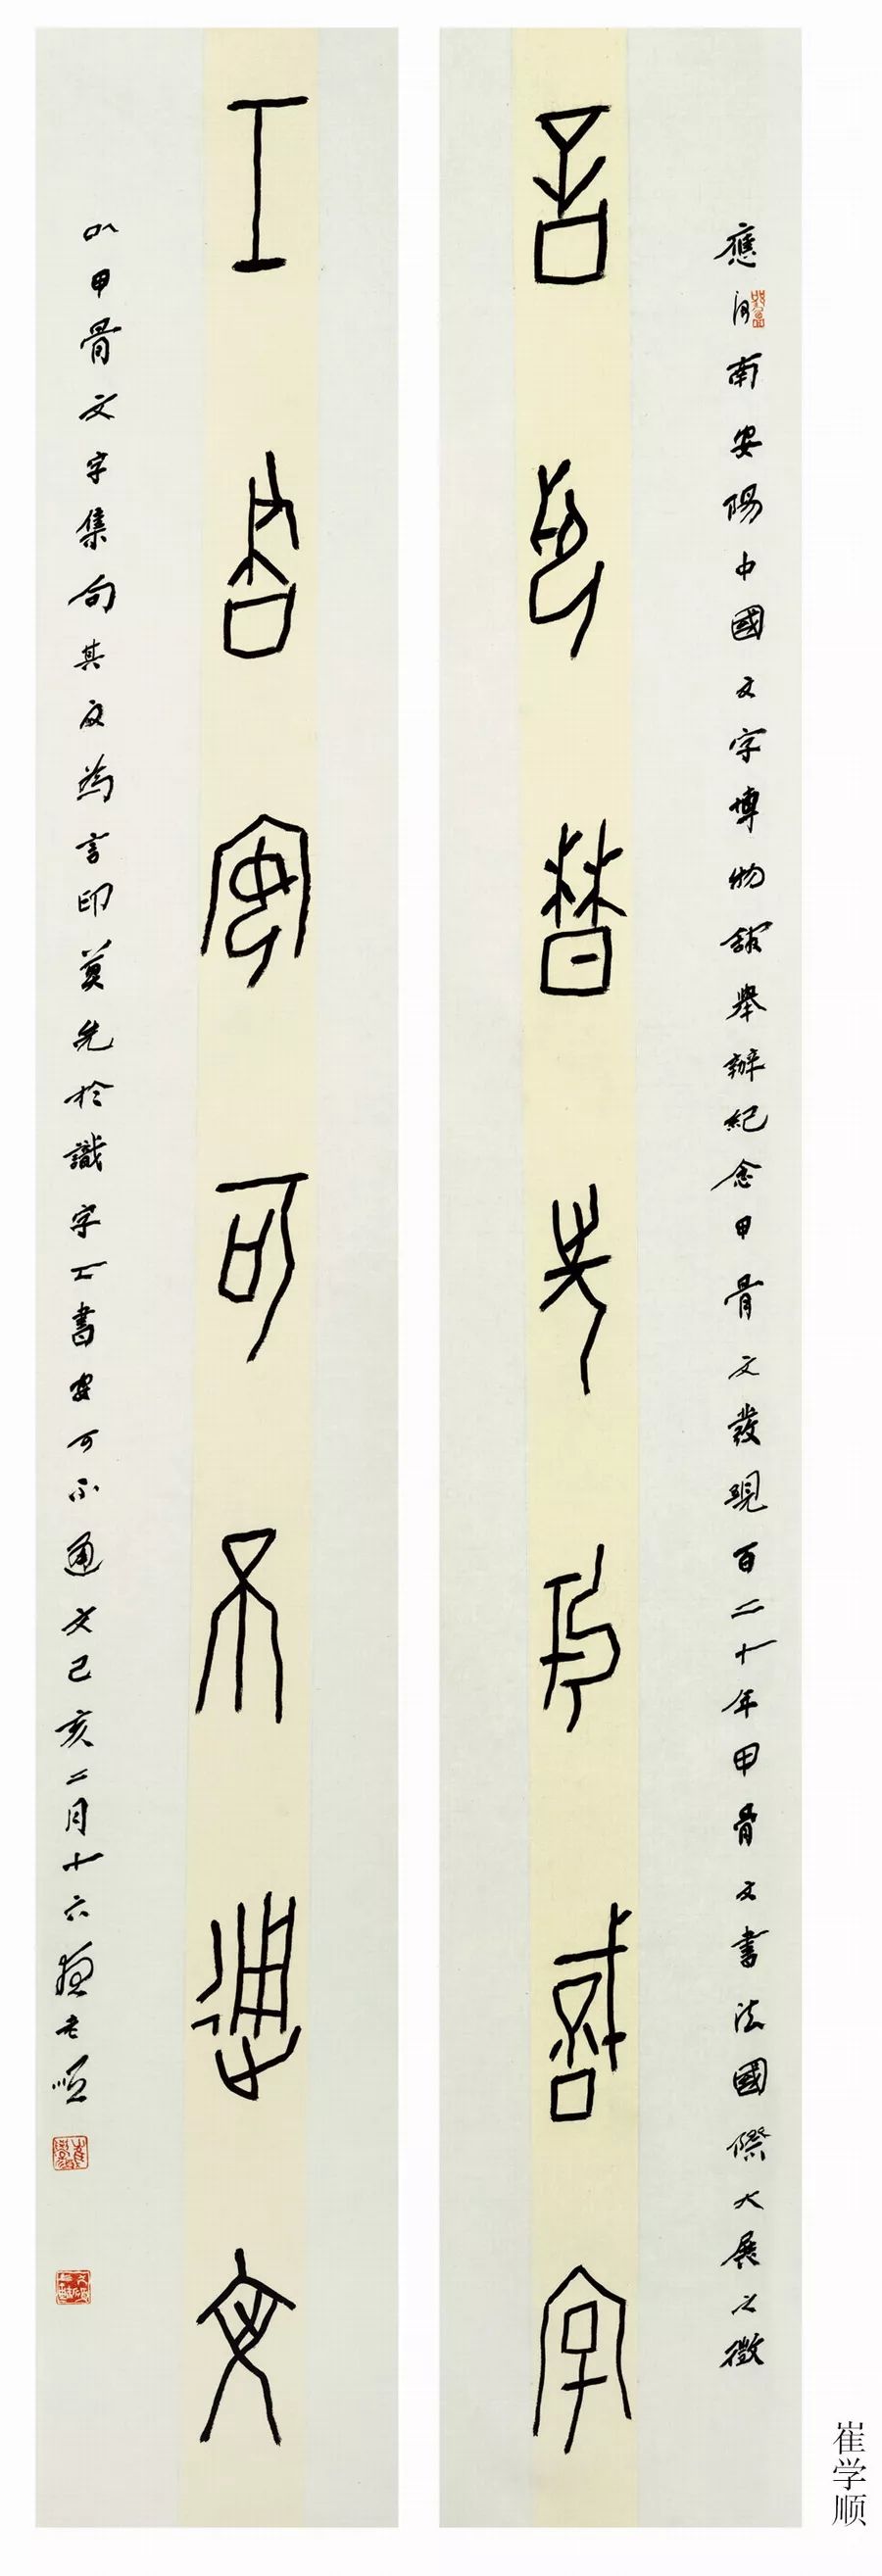 應河南安陽中國文字博物館舉辦紀念甲骨文發現百二十年甲骨文書法國際大展之徵
言印莫先於識字
工書安可不通文
以甲骨文字集句其文為言印莫先於識字工書安可不通文己亥二月十六老順
崔学顺